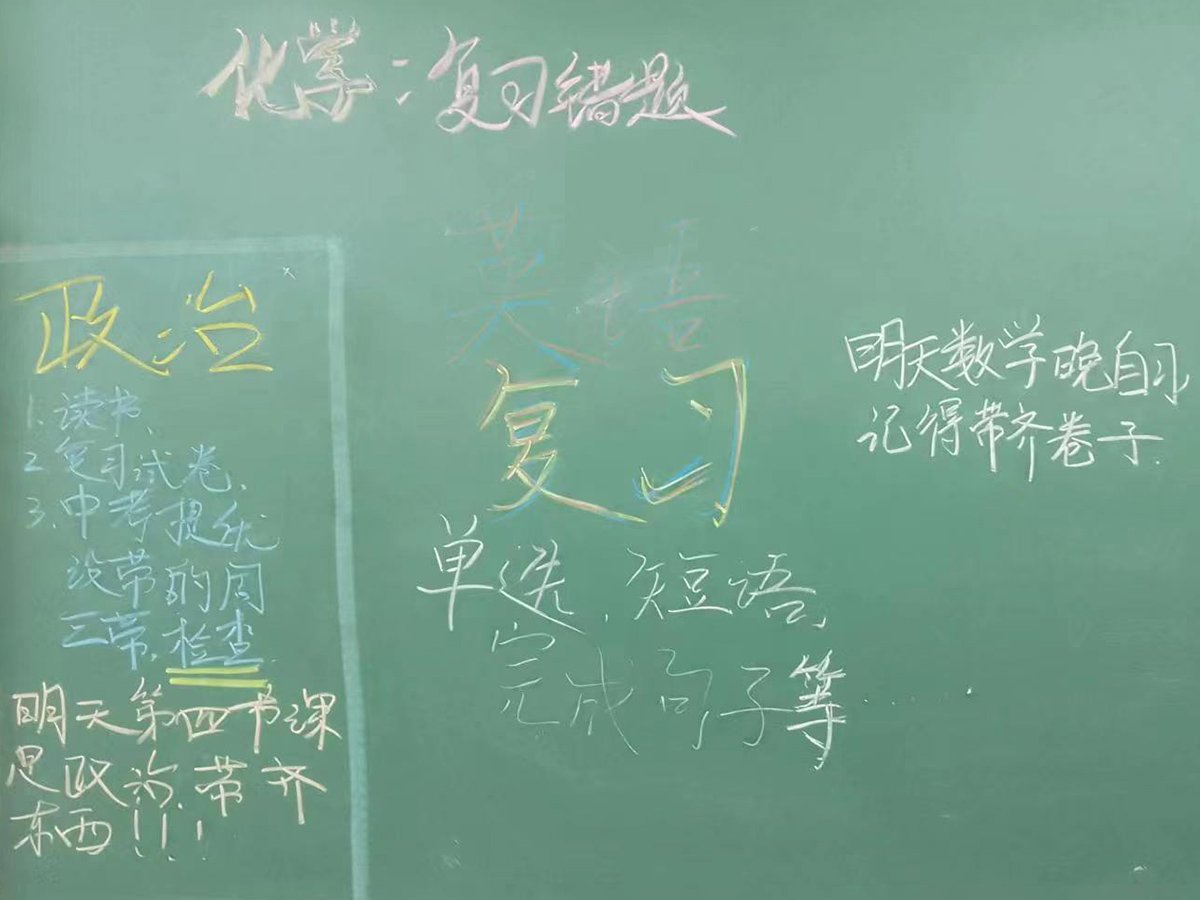 化学:复习错题
政治
1.读书、
2.复习试卷、
3.中考提优
没带的周
三带,检查.
明天第四节课
是政治,带齐
东西!!!
英语
复习
单选、短语、
完成句子等......
明天数学晚自习
记得带齐卷子.